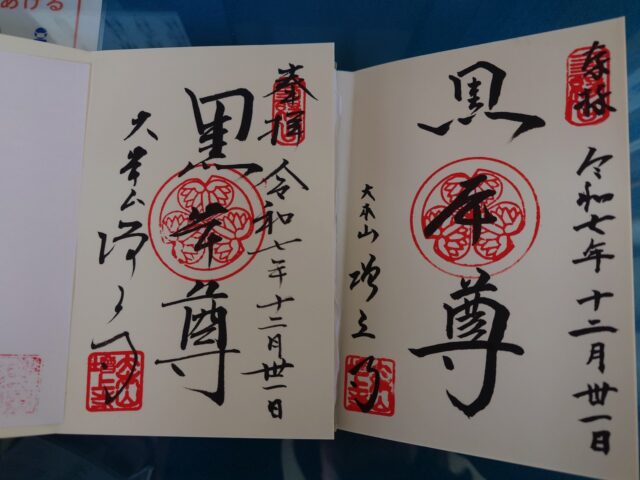 あげる
奉拝
令和七年十二月卅一日
黒本尊
大本山 増上寺
奉拝
令和七年十二月卅一日
黒本尊
大本山 増上寺